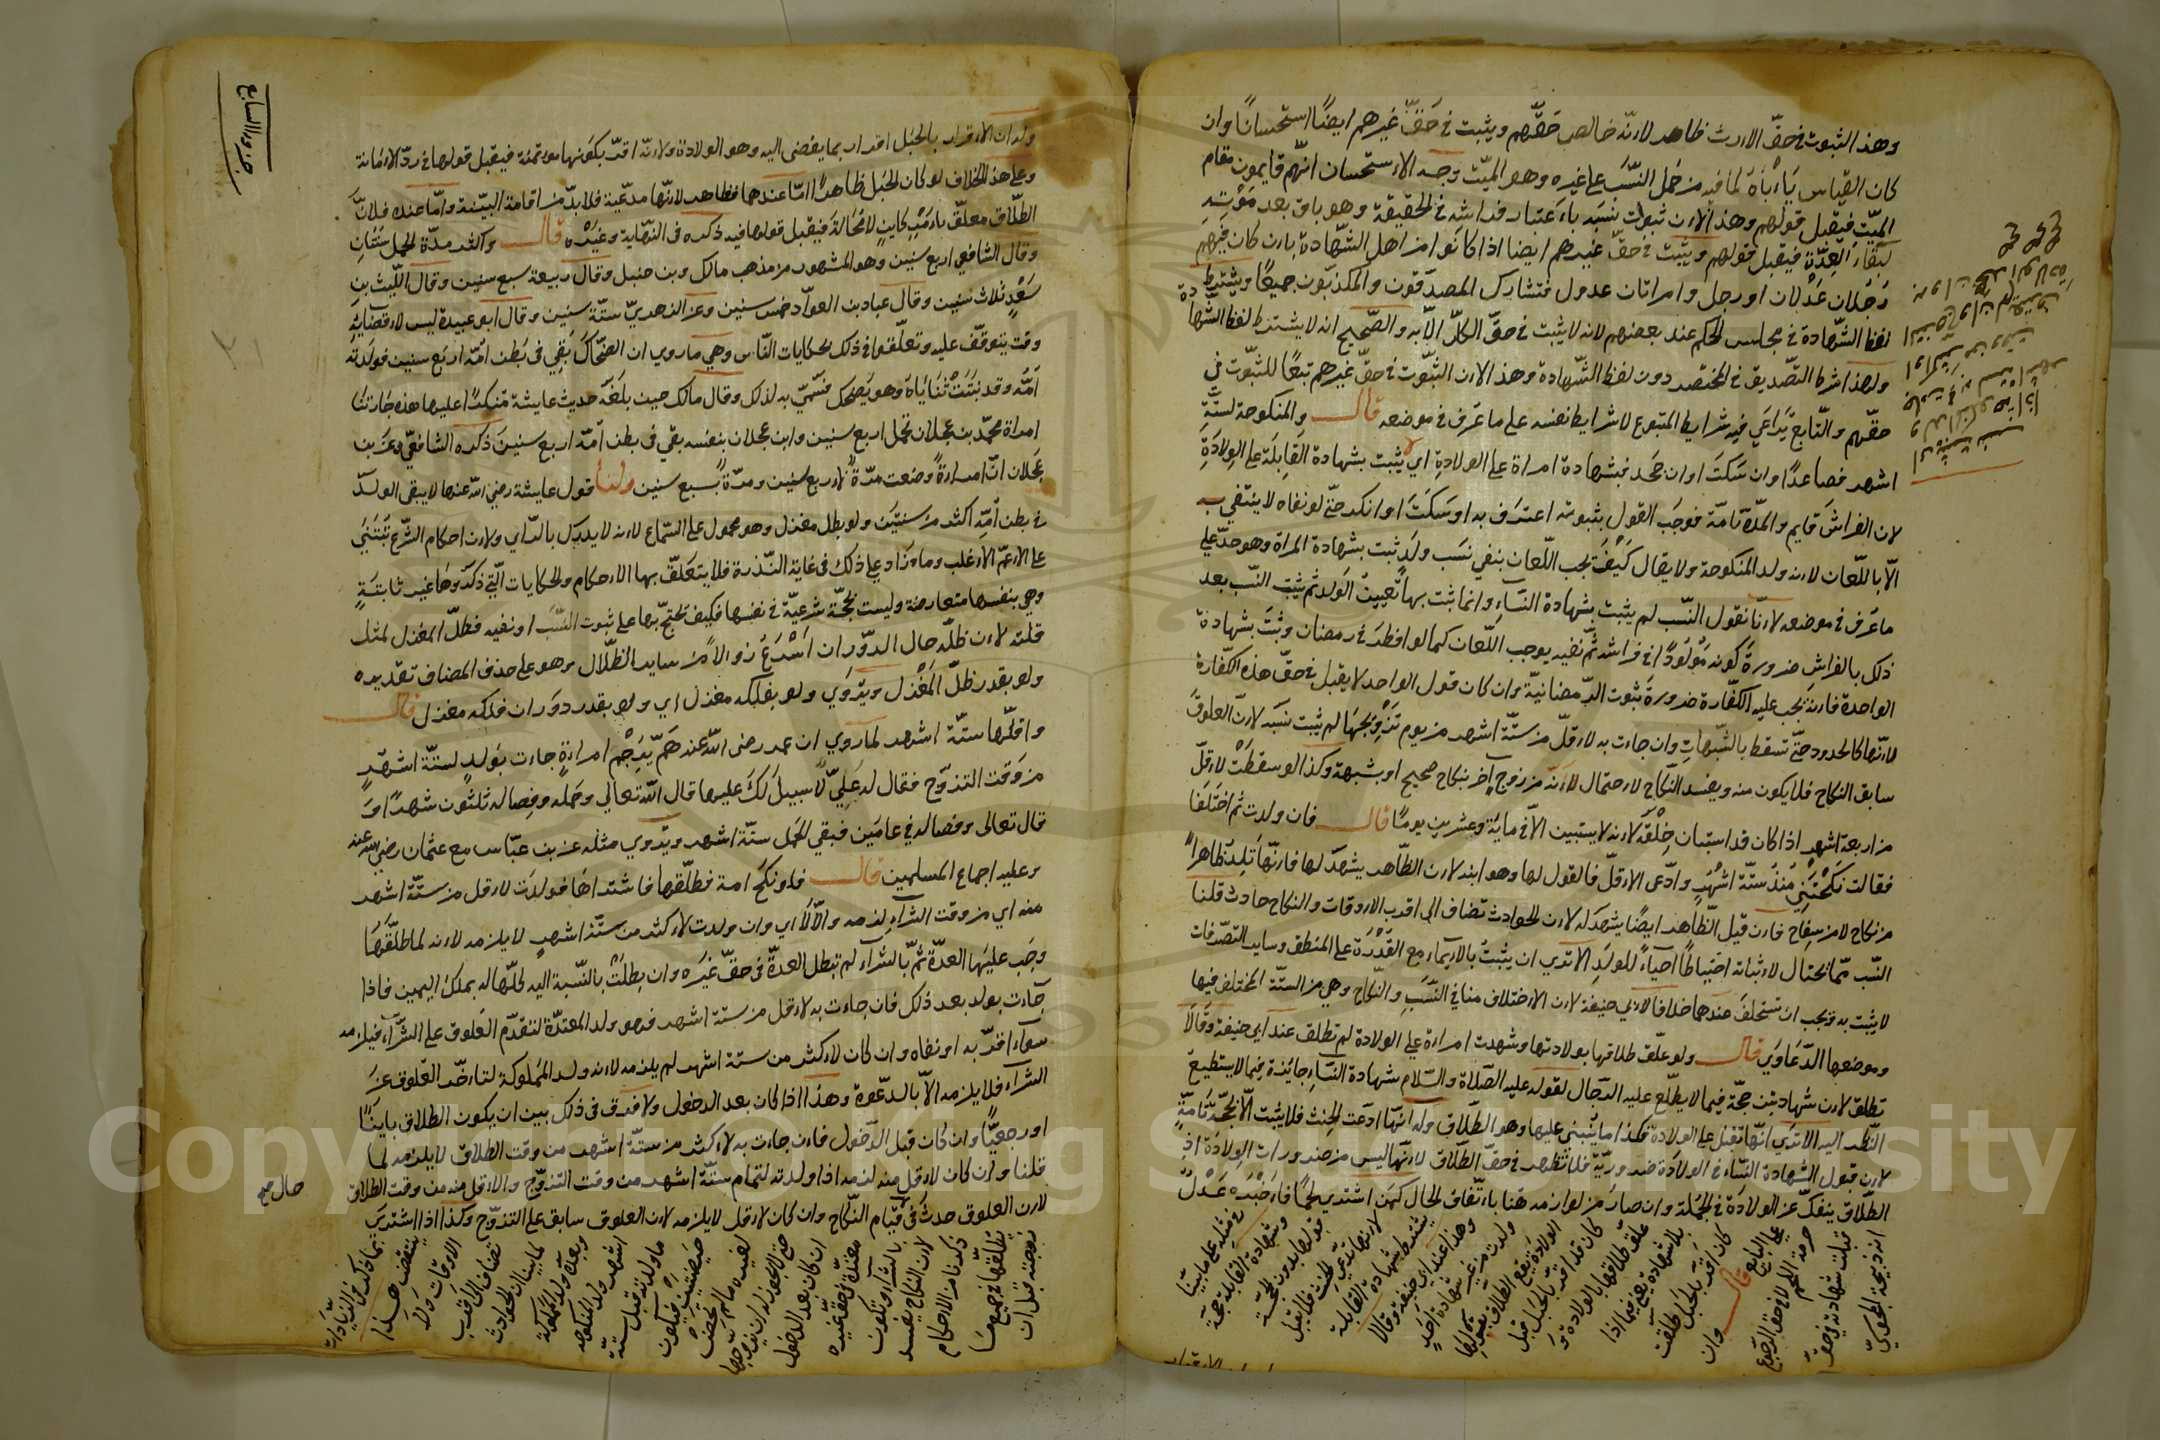 وهذا الثبوت في حق الارث ظاهر لانه خالص حقهم ويثبت في حق غيرهم ايضا استحسانا وان
كان القياس يأباه لما فيه من حمل النسب على غيره وهو الميت وجه الاستحسان انهم قايمون مقام
الميت فيقبل قولهم وهذا لان ثبوت نسبه باعتبار فراشه في الحقيقة وهو باق بعد موته
لبقاء العدة فيقبل قولهم ويثبت في حق غيرهم ايضا اذا كانوا من اهل الشهادة بان كان فيهم
رجلان عدلان او رجل وامراتان عدول فتشارك المصدقون والمكذبون جميعا ويشترط
لفظ الشهادة في مجلس الحكم عند بعضهم لانه لا يثبت في حق الكل الا به والصحيح انه لا يشترط لفظ الشهادة
ولهذا شرط التصديق في المختصر دون لفظ الشهادة وهذا لان الثبوت في حق غيرهم تبعا للثبوت في
حقهم والتابع يراعي فيه شرايط المتبوع لا شرايط نفسه على ما عرف في موضعه قال والمنكوحة لستة
اشهر فصاعدا وان سكت اوان جحد فبشهادة امراة على الولادة اي يثبت بشهادة القابلة على الولادة
لان الفراش قايم والمدة تامة فوجب القول بثبوته اعترف به او سكت او انكر حتى لو نفاه لا ينتفي به
الا باللعان لانه ولد المنكوحة ولا يقال كيف يجب اللعان بنفي نسب ولد ثبت بشهادة المراة وهو حد على
ما عرف في موضعه لانا نقول النسب لم يثبت بشهادة النساء وانما ثبت بها تعيين الولد ثم يثبت النسب بعد
ذلك بالفراش ضرورة كونه مولودا في فراشه ثم نفيه يوجب اللعان كما لو افطر في رمضان وثبت بشهادة
الواحدة فانه يجب عليه الكفارة ضرورة ثبوت الرمضانية وان كان قول الواحد لا يقبل في حق هذه الكفارة
لانها كالحدود حتى تسقط بالشبهات وان جاءت به لاقل من ستة اشهر من يوم تزوجها لم يثبت نسبه لان العلوق
سابق النكاح فلا يكون منه ويفسد النكاح لاحتمال لانه من زوج آخر بنكاح صحيح او بشبهة وكذا لو سقطت لاقل
من اربعة اشهر اذا كان قد استبان خلقه لانه لا يستبين الا في ماية وعشرين يوما قال فان ولدت ثم اختلفا
فقالت نكحتني منذ ستة اشهر وادعى الاقل فالقول لها وهو ابنه لان الظاهر يشهد لها فانها تلد ظاهرا
من نكاح لا من سفاح فان قيل الظاهر ايضا يشهد له لان الحوادث تضاف الى اقرب الاوقات والنكاح حادث قلنا
النسب مما يحتال لاثباته احتياطا احياء للولد الا ترى ان يثبت بالايماء مع القدرة على المنطق وساير التصرفات
لا يثبت به ويجب ان تستحلف عندهما خلافا لابي حنيفة لان الاختلاف هنا في النسب والنكاح وهي من الستة المختلف فيها
وموضعها الدعاوى قال ولو علق طلاقها بولادتها وشهدت امراة على الولادة لم تطلق عند ابي حنيفة وقالا
تطلق لان شهادتهن حجة فيما لا يطلع عليه الرجال لقوله عليه الصلاة والسلام شهادة النساء جايزة فيما لا يستطيع
النظر اليه الا ترى انها تقبل على الولادة فكذا ما يبتني عليها وهو الطلاق وله انها ادعت الحنث فلا يثبت الا بحجة تامة
لان قبول الشهادة النساء في الولادة ضرورية فلا تظهر في حق الطلاق لانها ليس من ضرورات الولادة اذ
الطلاق ينفك عن الولادة في الجملة وان صار من لوازمه هنا باتفاق الحال كمن اشترى لحما فاخبره عدل
انه ذبيحة المجوسي
قبلت شهادته في حق
حرمة اللحم
لا في حق الرجوع
على البايع
قال وان
كان اقر بالحبل طلقت
بلا شهادة يعني فيما اذا
علق طلاقها بالولادة و
كان قد اقر بالحبل قبل
الولادة يقع الطلاق بقولها
ولدت من غير شهادة احد
وهذا عند ابي حنيفة وقالا
يشترط شهادة القابلة
لانها تدعي الحنث فلا يقبل
قولها بدون الحجة
وشهادة القابلة حجة
في مثله على ما بينا
وله ان الاقرار بالحبل اقرار بما يفضي اليه وهو الولادة ولانه اقر بكونها موتمنة فيقبل قولها في رد الامانة
وعلى هذا الخلاف لو كان الحبل ظاهرا اما عندهما فظاهر لانها مدعية فلا بد من اقامة البينة واما عنده فلان
الطلاق معلق بامر كاين لا محالة فيقبل قولها فيه ذكره في النهاية وغيره قال واكثر مدة الحمل سنتان
وقال الشافعي اربع سنين وهو المشهور من مذهب مالك وبن حنبل وقال ربيعة سبع سنين وقال الليث بن
سعد ثلاث سنين وقال عباد بن العواد خمس سنين وعن الزهري ستة سنين وقال ابو عبيدة ليس لاقصاه
وقت يتوقف عليه وتعلقوا في ذلك بحكايات الناس وهي ما روي ان الضحاك بقي في بطن امه اربع سنين فولدته
امه وقد نبتت ثناياه وهو يضحك فسمي به لذلك وقال مالك حين بلغه حديث عايشة منكرا عليها هذه جارتنا
امراة محمد بن عجلان تحمل اربع سنين وابن عجلان بنفسه بقي في بطن امه اربع سنين ذكره الشافعي وعن بن
عجلان ان امراة وضعت مرة لاربع سنين ومرة لسبع سنين ولنا قول عايشة رضي الله عنها لا يبقى الولد
في بطن امه اكثر من سنتين ولو بظل مغزل وهو محمول على السماع لانه لا يدرك بالراي ولان احكام الشرع تبتني
على الاعم الاغلب وما زاد على ذلك في غاية الندرة فلا يتعلق بها الاحكام والحكايات التي ذكروها غير ثابتة
وهي بنفسها متعارضة وليست بحجة شرعية في نفسها فكيف تحتج بها على ثبوت النسب او نفيه فظل المغزل لمثل
قلته لان ظله حال الدوران اسرع زوالا من ساير الظلال وهو على حذف المضاف تقديره
ولو بقدر ظل المغزل ويروى ولو بفلكه مغزل اي ولو بقدر دوران فلكه مغزل قال
واقلها ستة اشهر لما روي ان عمر رضى الله عنه هم برجم امراة جاءت بولد لستة اشهر
من وقت التزوج فقال له علي لا سبيل لك عليها قال الله تعالى وحمله وفصاله ثلثون شهرا و
قال تعالى وفصاله في عامين فبقي للحمل ستة اشهر ويروى مثله عن بن عباس مع عثمان رضي الله عنه
وعليه اجماع المسلمين قال فلو نكح امة فطلقها فاشتراها فولدت لاقل من ستة اشهر
منه اي من وقت الشراء لزمه والا لا اي وان ولدت لاكثر من ستة اشهر لا يلزمه لانه لما طلقها
وجب عليها العدة ثم بالشراء لم تبطل العدة في حق غيره وان بطلت بالنسبة اليه لحلها له بملك اليمين فاذا
جاءت بولد بعد ذلك فان جاءت به لاقل من ستة اشهر فهو ولد المعتدة لتقدم العلوق على الشراء فيلزمه
سواء اقر به او نفاه وان كان لاكثر من ستة اشهر لم يلزمه لانه ولد المملوكة لتاخر العلوق عن
الشراء فلا يلزمه الا بالدعوة وهذا اذا كان بعد الدخول ولا فرق في ذلك بين ان يكون الطلاق باينا
او رجعيا وان كان قبل الدخول فان جاءت به لاكثر من ستة اشهر من وقت الطلاق لا يلزمه لما
قلنا وان كان لاقل منه لزمه اذا ولدته لتمام ستة اشهر من وقت التزوج والاقل منه من وقت الطلاق
لان العلوق حدث في قيام النكاح وان كان لاقل لا يلزمه لان العلوق سابق على التزوج وكذا اذا اشترى
زوجته قبل ان
يطلقها في جميع ما
ذكرنا من الاحكام
لان النكاح يفسد
بالشراء وتكون
معتدة في حق غيره
ان كان بعد الدخول
حتى لا يجوز له ان يزوجها
لغيره ما لم تحض
حيضتين فيكون
ما ولدته قبل ستة
اشهر ولد المنكوحة
وبعده ولد المملوكة
لما بينا ان الحوادث
تضاف الى اقرب
الاوقات ولا
ينتقض هذا
بما ذكر في الزيادات
حال صح
جزء السابع
Copyright © King Saud University